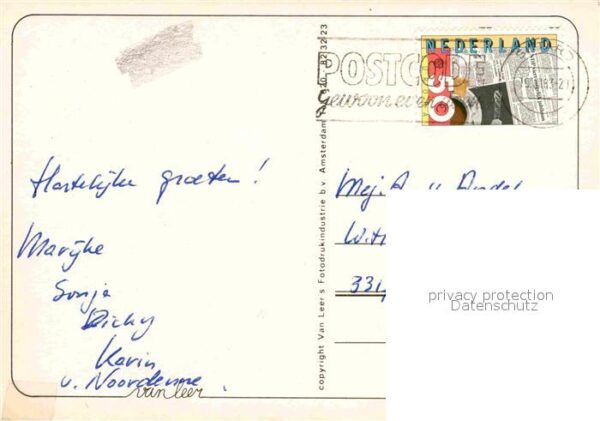 Hartelijke groeten!
Marijke
Sonja
Dicky
Karin
v. Noordenne.
van leer
copyright Van Leer's Fotodrukindustrie b.v. Amsterdam
POSTCODE
gewoon even
NEDERLAND
50
Mej. A. v. Andel
Wit
331
privacy protection
Datenschutz